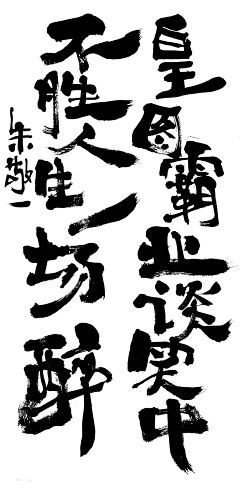 皇图霸业谈笑中
不胜人生一场醉
朱敬一